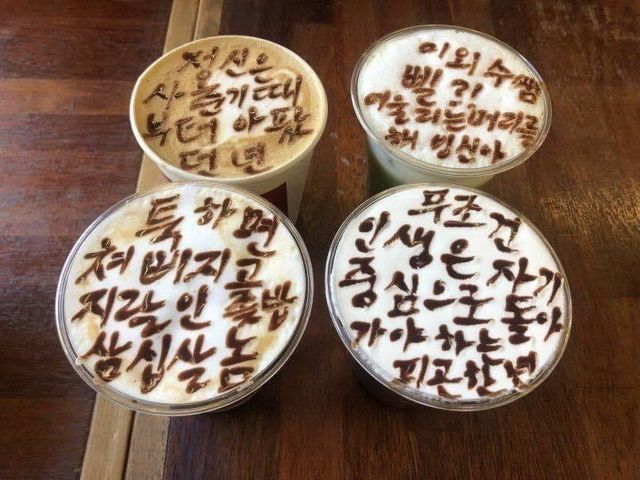 정신은
사춘기때
부터 아팠
던 년
이외수쌤
삘?!
어울리는머리를
해 병신아
툭하면
쳐삐지고
지랄인 좁밥
삼십살놈
무조건
인생은 자기
중심으로 돌아
가야하는
피곤한년